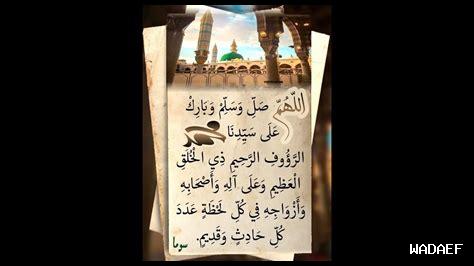 اللَّهُمَّ صَلِّ وَسَلِّمْ وَبَارِكْ
عَلَى سَيِّدِنَا مُحَمَّدٍ
الرَّؤُوفِ الرَّحِيمِ ذِي الْخُلُقِ
الْعَظِيمِ وَعَلَى آلِهِ وَأَصْحَابِهِ
وَأَزْوَاجِهِ فِي كُلِّ لَحْظَةٍ عَدَدَ
كُلِّ حَادِثٍ وَقَدِيمٍ.
سوما
WADAEF